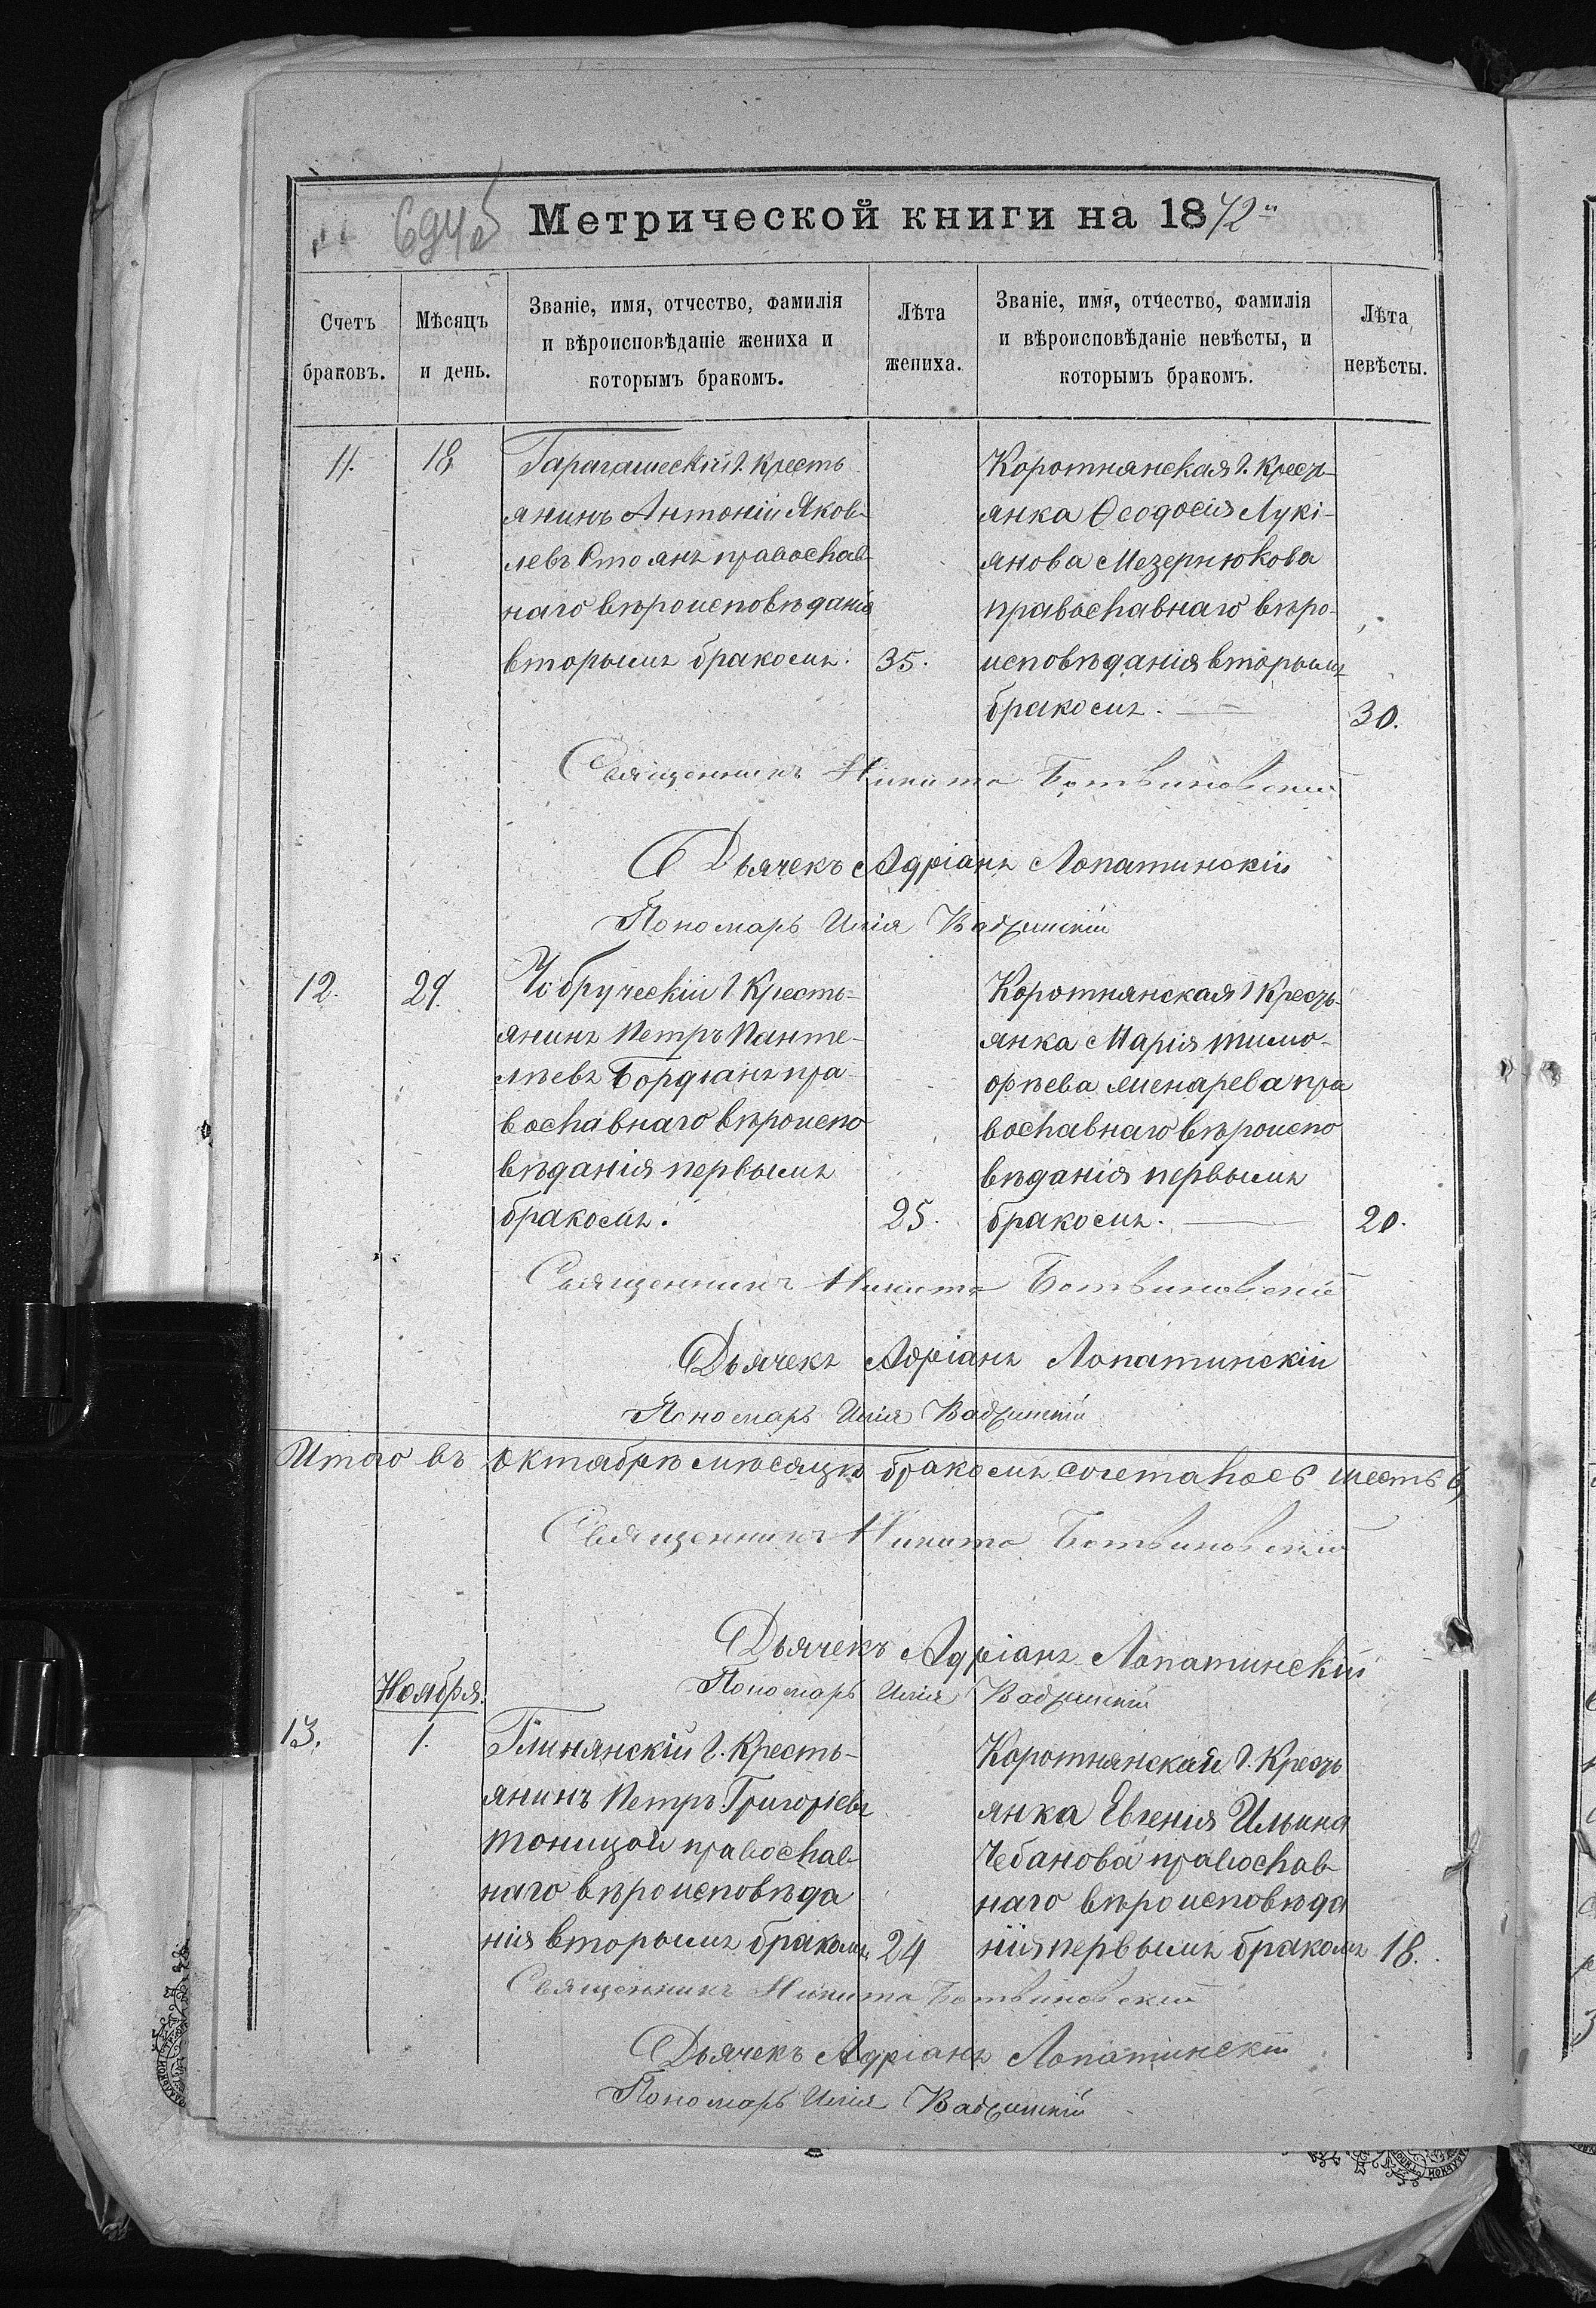 694об
Метрической книги на 1872й
Счетъ браковъ.
Мѣсяцъ и день.
Званіе, имя, отчество, фамилія и вѣроисповѣданіе жениха и которымъ бракомъ.
Лѣта жениха.
Званіе, имя, отчество, фамилія и вѣроисповѣданіе невѣсты, и которымъ бракомъ.
Лѣта невѣсты.
11.
18
Гарагашескій г. Кресть
янинъ Антоній Яков-
левъ Стоянъ православ-
наго вѣроисповѣданія
вторымъ бракомъ.
35.
Коротнянская г. Кресть-
янка Ѳеодосія Лукі-
янова Мезернюкова
православнаго вѣро-
исповѣданія вторымъ
бракомъ.
30.
Священникъ Никита Ботвиновскій
Дьячекъ Адріанъ Лопатинскій
Пономарь Илія
12.
29.
Чобруческій г. Кресть-
янинъ Петръ Панте-
лѣевъ Бордіанъ пра-
вославнаго вѣроиспо
вѣданія первымъ
бракомъ.
25.
Коротнянская г. Кресть-
янка Марія Тимо-
фѣева пра
вославнаго вѣроиспо
вѣданія первымъ
бракомъ.
20.
Священникъ Никита Ботвиновскій
Дьячекъ Адріанъ Лопатинскій
Пономарь Илія
Итого въ Октябрѣ мѣсяцѣ бракомъ сочеталось шесть 6,
Священникъ Никита Ботвиновскій
Дьячекъ Адріанъ Лопатинскій
Пономарь Илія
Ноября.
13.
1.
Глинянскій г. Кресть-
янинъ Петръ Григоріевъ
Тоницой православ-
наго вѣроисповѣда
нія вторымъ бракомъ
24
Коротнянская г. Кресть
янка Евгенія Ильина
Чебанова православ-
наго вѣроисповѣда
нія первымъ бракомъ
18.
Священникъ Никита Ботвиновскій
Дьячекъ Адріанъ Лопатинскій
Пономарь Илія